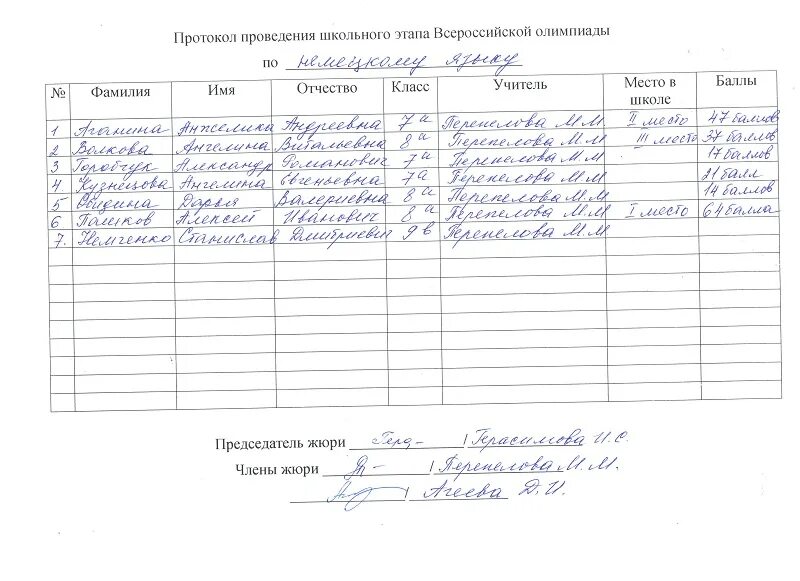 Протокол проведения школьного этапа Всероссийской олимпиады
по немецкому языку
№ Фамилия Имя Отчество Класс Учитель Место в школе Баллы
1 Аганина Анжелика Андреевна 7а Перепелова М.М. II место 47 баллов
2 Волкова Ангелина Витальевна 8а Перепелова М.М. III место 37 баллов
3 Горобчук Александр Романович 7а Перепелова М.М. 17 баллов
4. Кузнецова Ангелина Евгеньевна 7а Перепелова М.М. 21 балл
5 Дарья Валериевна 8а Перепелова М.М. 14 баллов
6 Пашков Алексей Иванович 8а Перепелова М.М. I место 64 балла
7. Немченко Станислав Дмитриевич 9в Перепелова М.М
Председатель жюри / Герасимова И.С.
Члены жюри / Перепелова М.М.
/ Агеева Д.И.